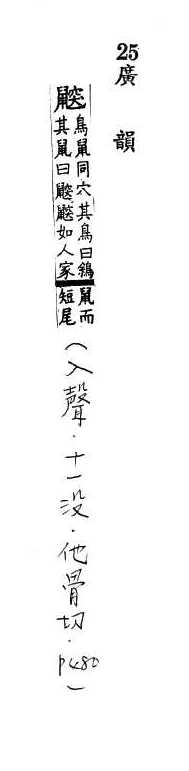 25
廣韻
鼵鳥鼠同穴其鳥曰鵌
其鼠曰鼵鼵如人家鼠而
短尾(入聲.十一沒.他骨切.p480)